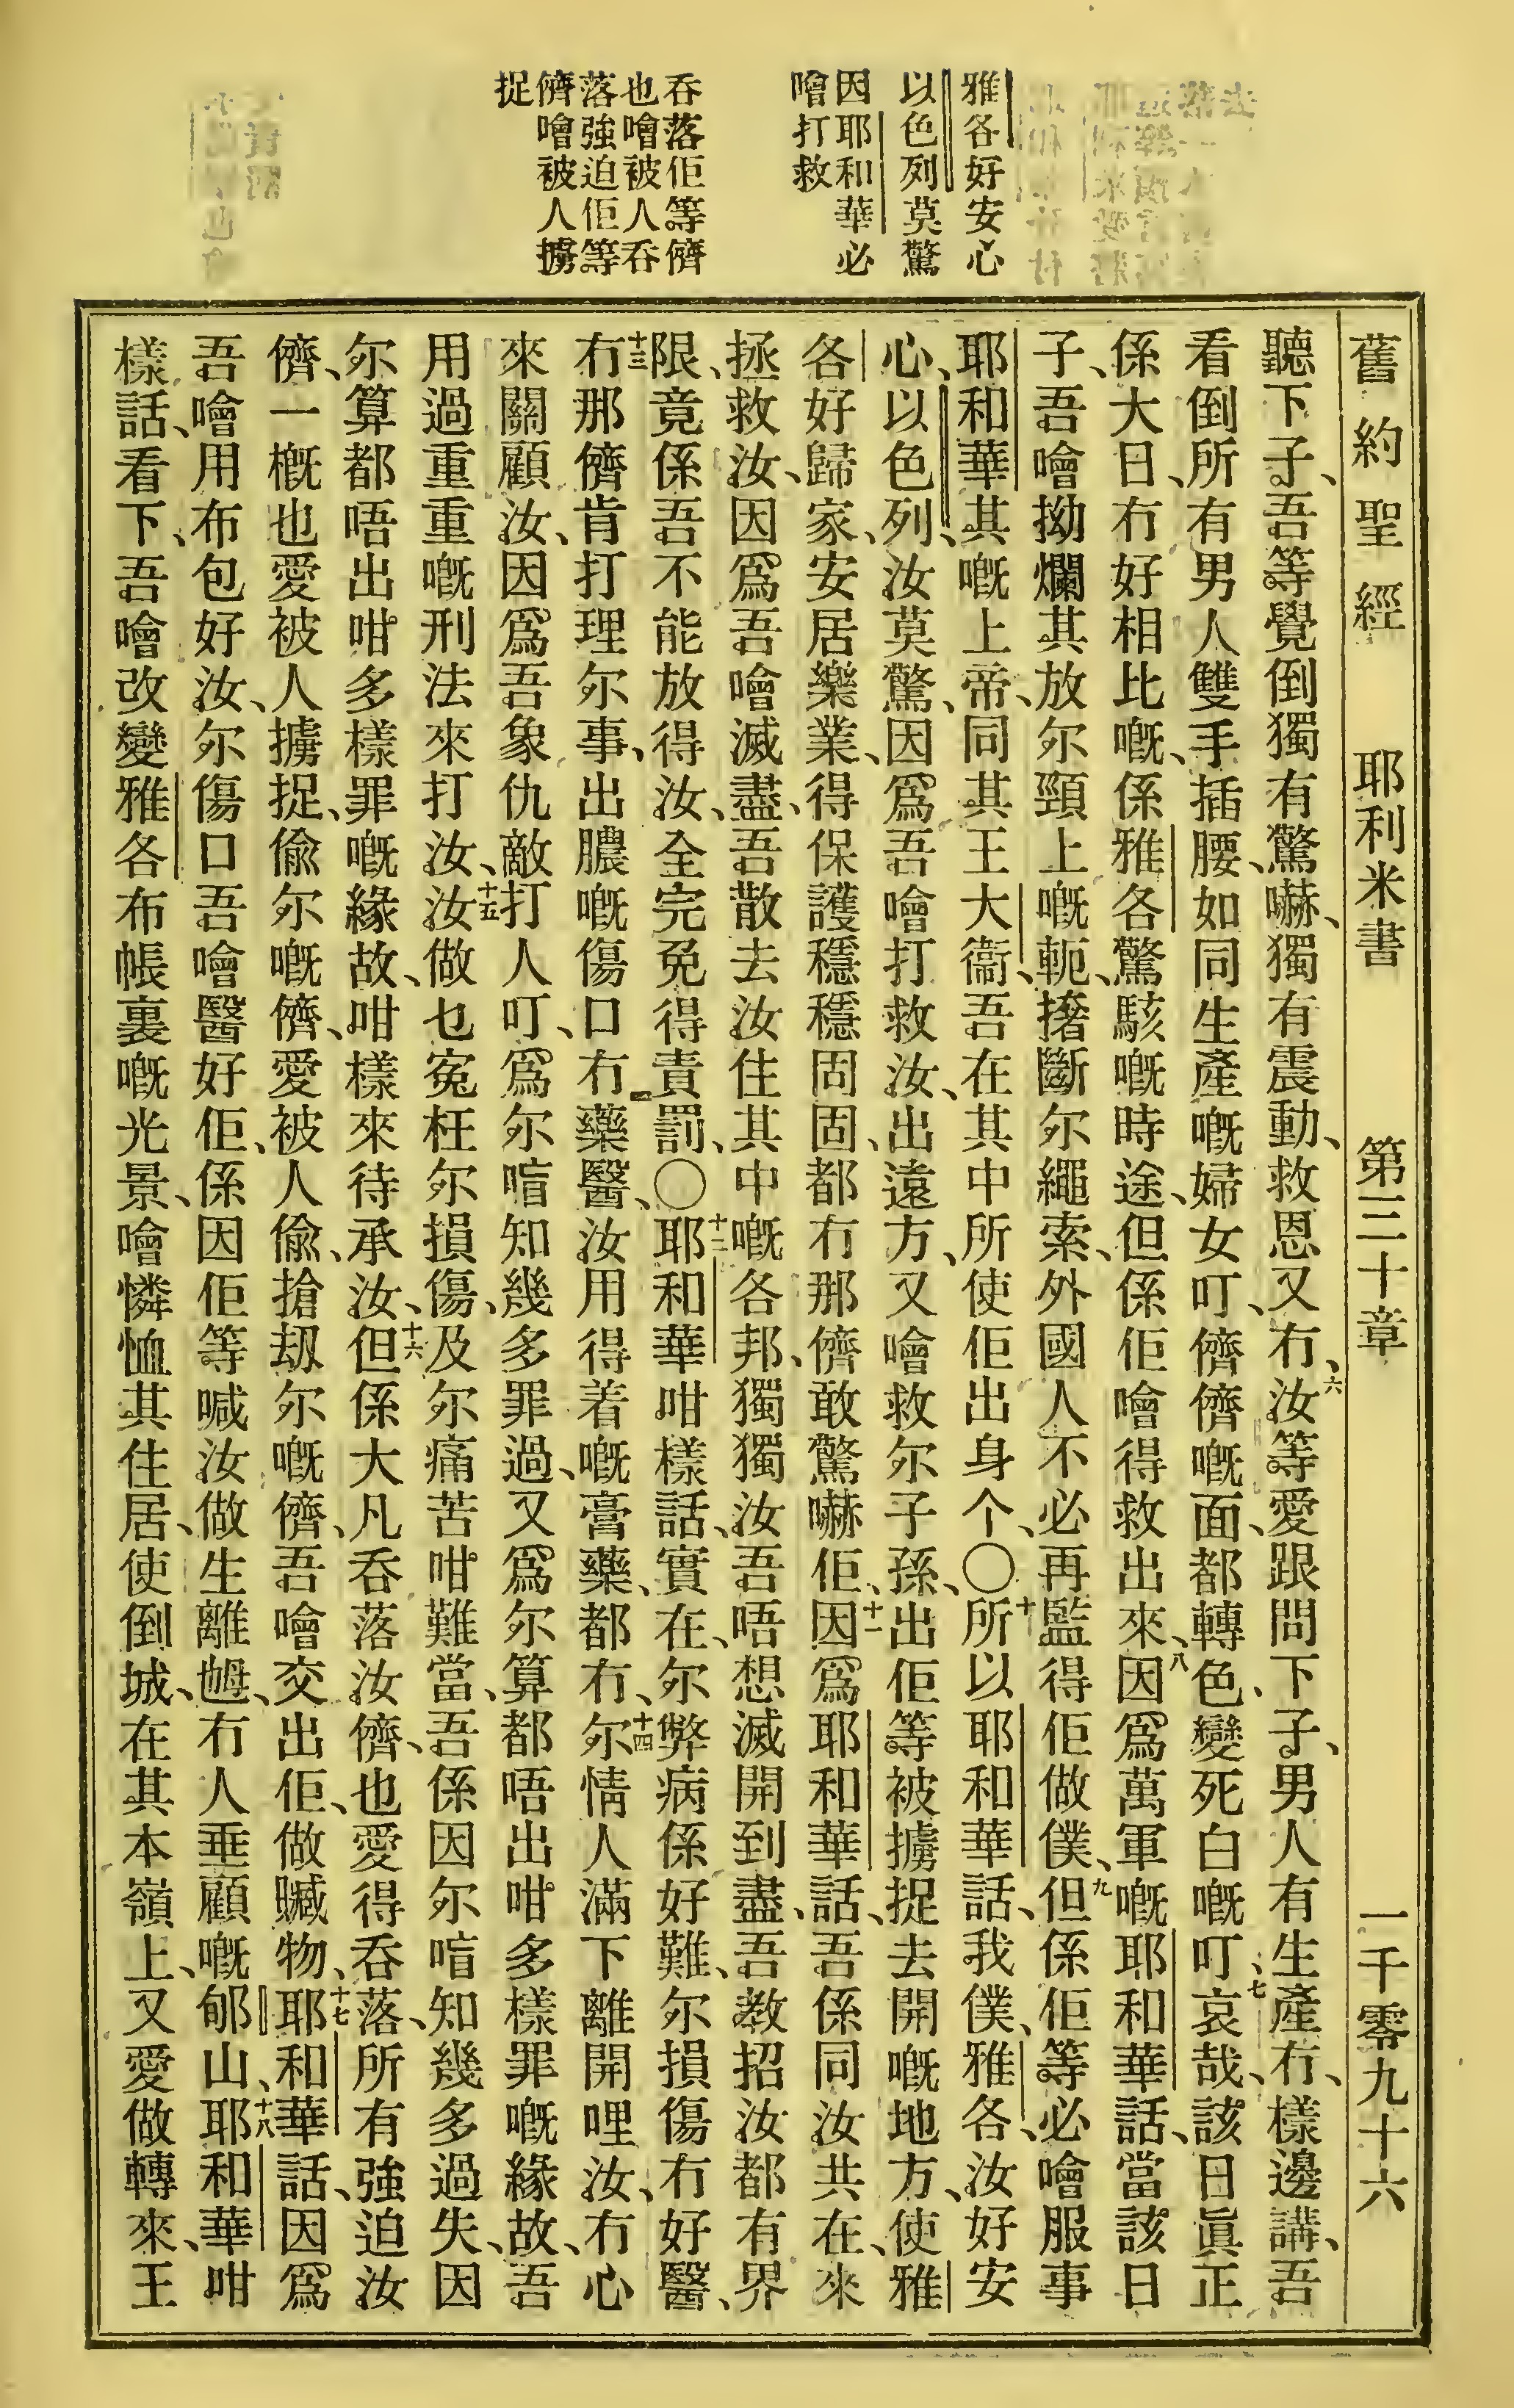 雅各好安心
以色列莫驚
因耶和華必
噲打救
吞落佢等儕
也噲被人吞
落強迫佢等
儕噲被人擄
捉
舊約聖經　耶利米書　第三十章　一千零九十六
聽下子、吾等覺倒獨有驚嚇、獨有震動、救恩又冇、六汝等愛跟問下子、男人有生產冇、樣邊講、吾
看倒所有男人雙手插腰、如同生產嘅婦女叮、儕儕嘅面、都轉色、變死白嘅叮、七哀哉、該日眞正
係大日、冇好相比嘅、係雅各驚駭嘅時途、但係佢噲得救出來、八因爲萬軍嘅耶和華話、當該日
子、吾噲拗爛其放尔頸上嘅軛、撦斷尔繩索、外國人不必再監得佢做僕、九但係佢等必噲服事
耶和華其嘅上帝、同其王大衞、吾在其中所使佢出身个、〇十所以耶和華話、我僕、雅各、汝好安
心、以色列、汝莫驚、因爲吾噲打救汝、出遠方、又噲救尔子孫、出佢等被擄捉去開嘅地方、使雅
各好歸家、安居樂業、得保護穩穩固固、都冇那儕敢驚嚇佢、十一因爲耶和華話、吾係同汝共在、來
拯救汝、因爲吾噲滅盡、吾散去汝住其中嘅各邦、獨獨汝吾唔想滅開到盡、吾教招汝都有界
限、竟係吾不能放得汝、全完免得責罰、〇十二耶和華咁樣話、實在、尔弊病係好難、尔損傷冇好醫、
十三冇那儕肯打理尔事、出膿嘅傷口冇藥醫、汝用得着嘅膏藥、都冇、十四尔情人滿下離開哩汝、冇心
來關顧汝、因爲吾象仇敵打人叮、爲尔喑知幾多罪過、又爲尔算都唔出咁多樣罪嘅緣故、吾
用過重重嘅刑法來打汝、十五汝做乜寃枉尔損傷、及尔痛苦咁難當、吾係因尔喑知幾多過失、因
尔算都唔出咁多樣罪嘅緣故、咁樣來待承汝、十六但係大凡吞落汝儕、也愛得吞落、所有強迫汝
儕、一概也愛被人擄捉、偷尔嘅儕、愛被人偷、搶刼尔嘅儕、吾噲交出佢、做贓物、十七耶和華話、因爲
吾噲用布包好汝、尔傷口吾噲醫好佢、係因佢等喊汝做生離乸、冇人垂顧嘅郇山、十八耶和華咁
樣話、看下、吾噲改變雅各布帳裏嘅光景、噲憐恤其住居、使倒城、在其本嶺上、又愛做轉來、王